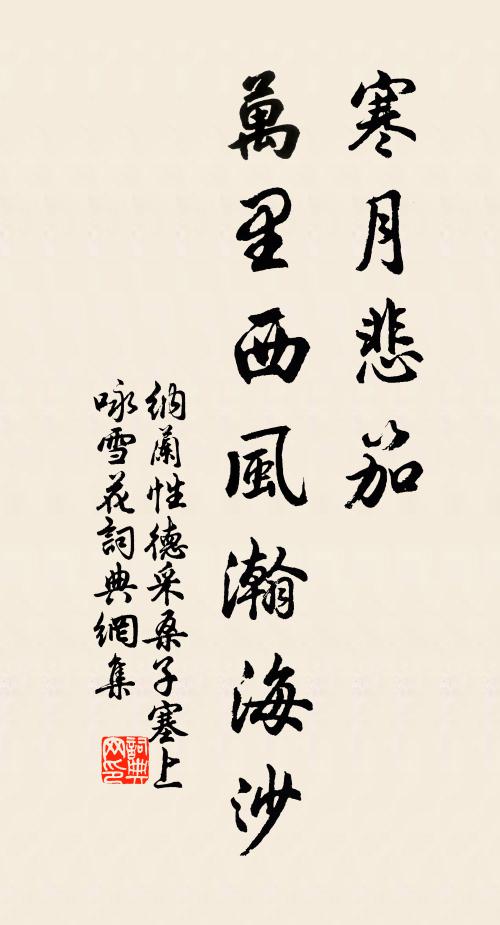 寒月悲笳
萬里西風瀚海沙
納蘭性德采桑子塞上
咏雪花詞典網集
詞典
网印